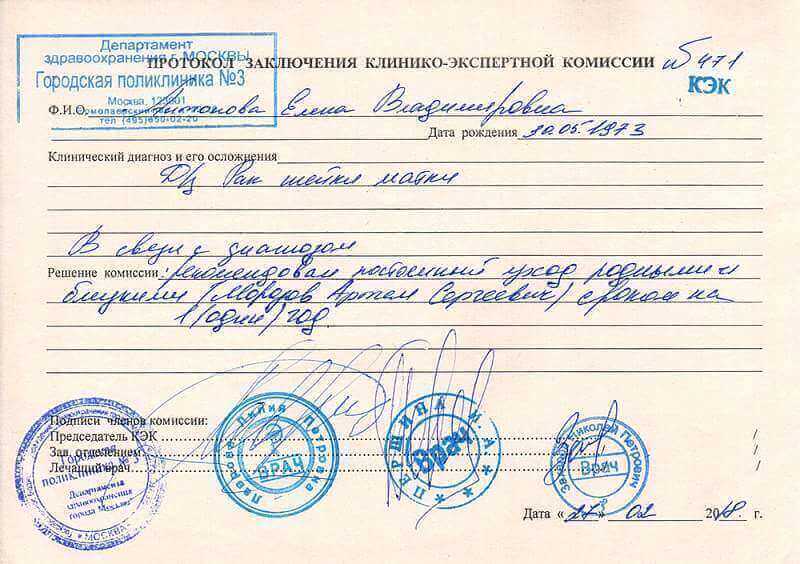 Департамент
здравоохранения г. МОСКВЫ
Городская поликлиника №3
Москва,
Ермолаевский
тел (495)650-02-20
ПРОТОКОЛ ЗАКЛЮЧЕНИЯ КЛИНИКО-ЭКСПЕРТНОЙ КОМИССИИ № 471
КЭК
Ф.И.О. Елена Владимировна
Дата рождения 30.05.1973
Клинический диагноз и его осложнения
Рак шейки матки
В связи с диагнозом
Решение комиссии: рекомендован постоянный уход родными и
близкими (Морозов Артем Сергеевич) сроком на
1 (один) год.
Подписи членов комиссии:
Председатель КЭК
Зав. отделением
Лечащий врач
Городская
поликлиника № 3
Департамента
здравоохранения
города Москвы
* МОСКВА *
Лилия Петровна
ВРАЧ
* ПЕРШИНА И. А. *
Врач
Николай Петрович
Врач
Дата « 27 » 02 2018 г.